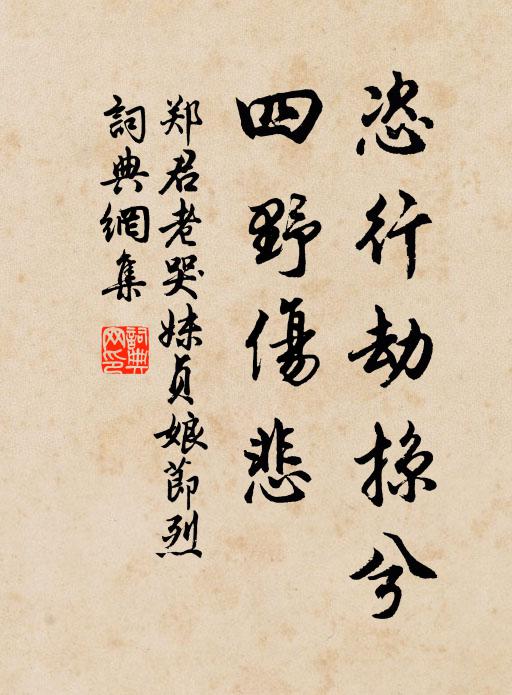 恣行劫掠兮
四野傷悲
郑君老哭妹貞娘節烈
詞典網集
詞典
网印